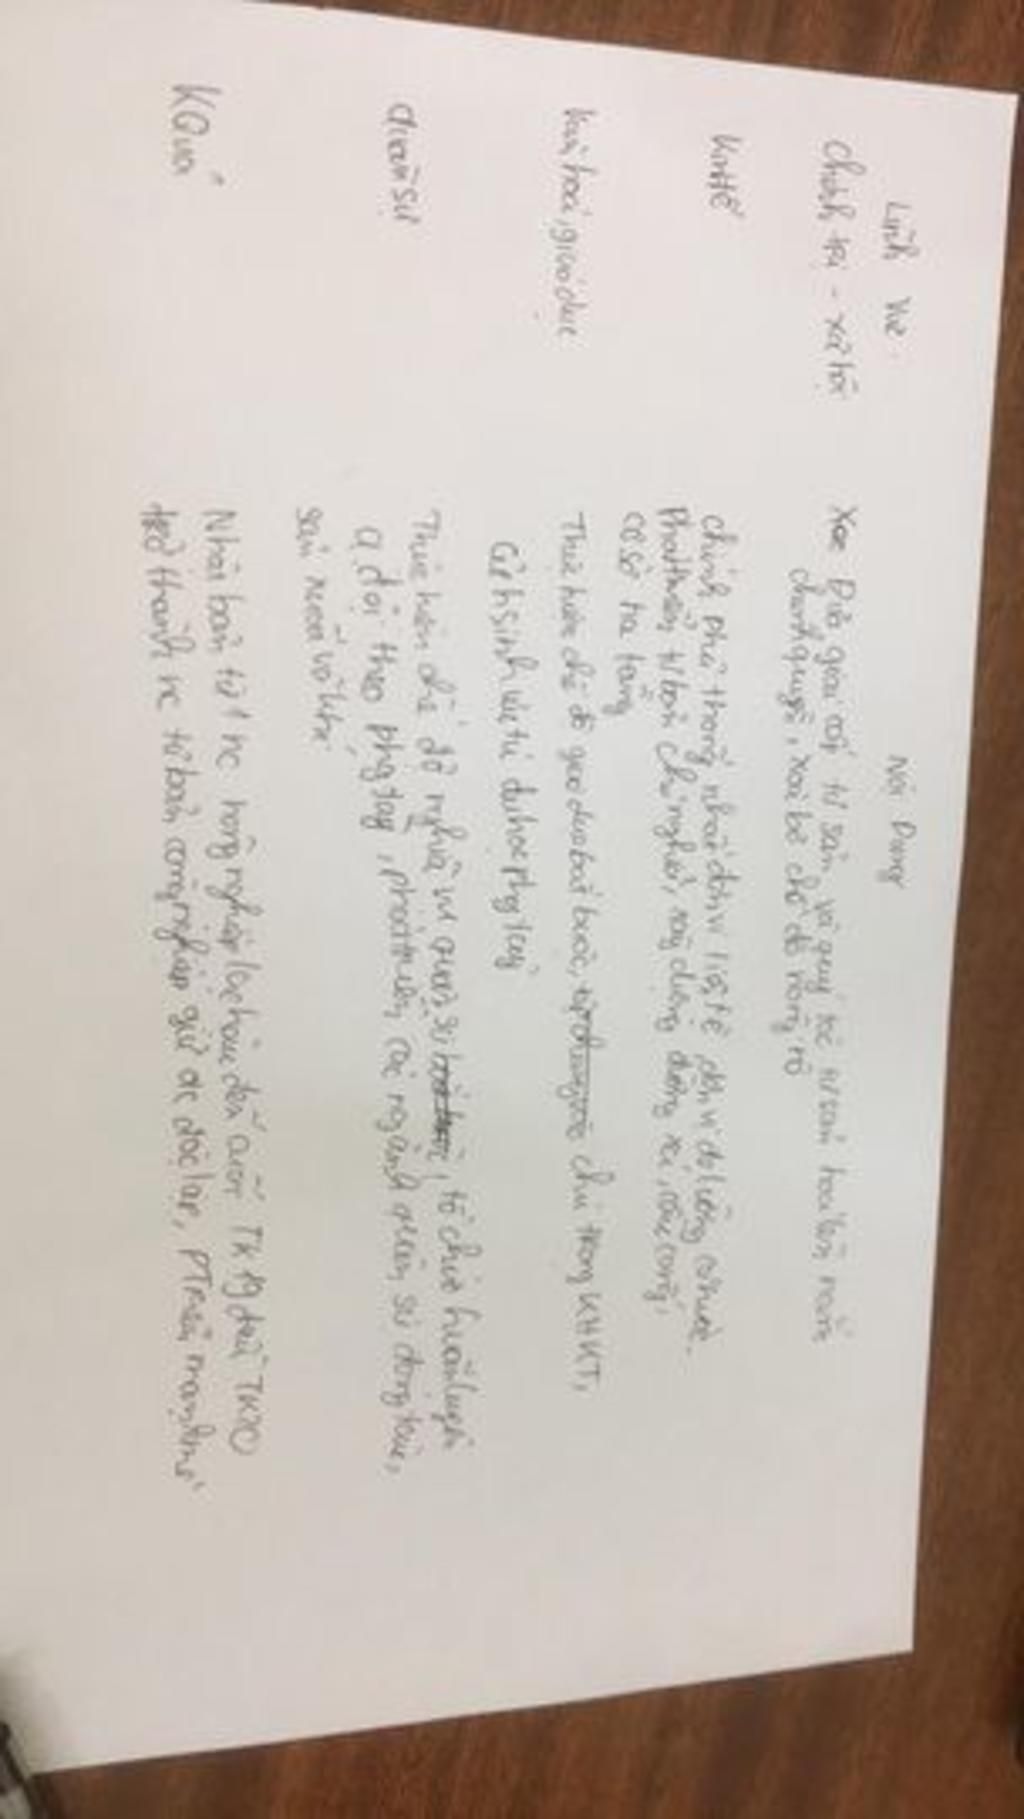 Lĩnh vực Nội Dung
Chính trị - xã hội Xác giai cấp tư sản và quý tộc tư sản hoá lên nắm
chính quyền, xoá bỏ chế độ nông nô
Kinh tế chính phủ thống nhất đơn vị tiền tệ đơn vị đo lường
Phát triển tư bản CN ở nghề, xây dựng đường xá, cầu cống,
cơ sở hạ tầng
Văn hoá, giáo dục Thực hiện chế độ giáo dục bắt buộc, chú trọng KHKT,
Cử h sinh ưu tú du học phg tây
Quân sự Thực hiện chế độ nghĩa vụ quân sự, tổ chức huấn luyện
q đội theo phg tây, phát triển các ngành quân sự đóng tàu,
sản xuất vũ khí
KQuả Nhật bản từ 1 nc nông nghiệp lạc hậu đến cuối TK 19 đầu TK20
trở thành nc tư bản công nghiệp giữ đc độc lập, PTriển mạnh mẽ